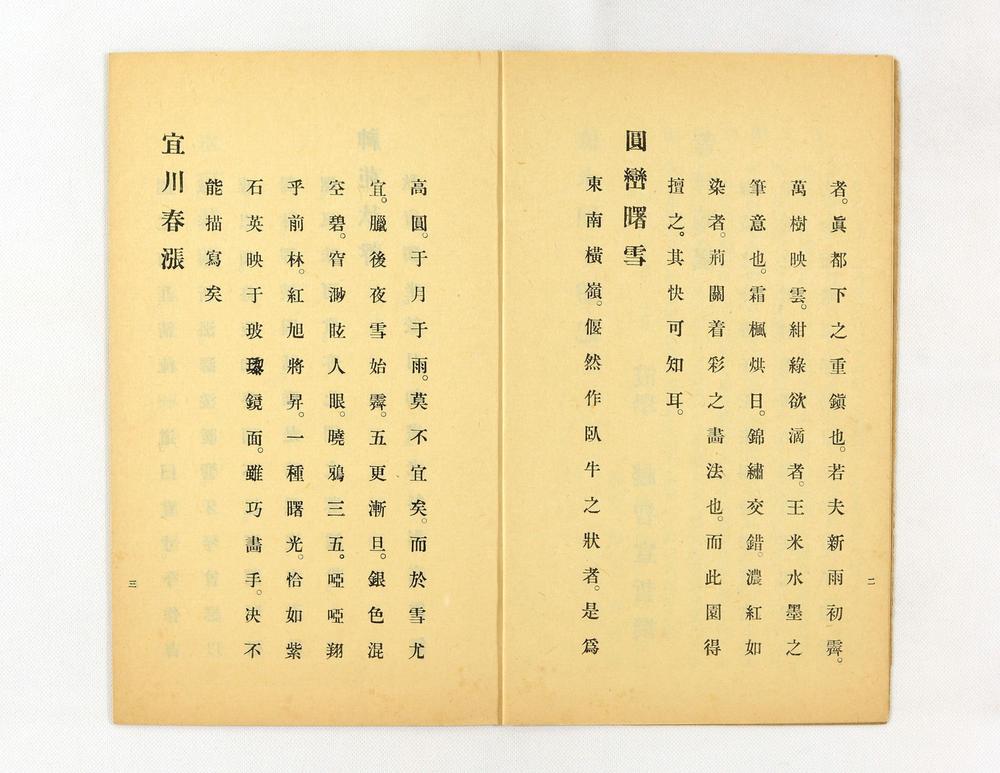 者。眞都下之重鎭也。若夫新雨初霽。
萬樹映雲。紺綠欲滴者。王米水墨之
筆意也。霜楓烘日。錦繡交錯。濃紅如
染者。荊關着彩之畵法也。而此園得
擅之。其快可知耳。
圓巒曙雪
東南橫嶺。偃然作臥牛之狀者。是爲
二
高圓。于月于雨。莫不宜矣。而於雪尤
宜。臘後夜雪始霽。五更漸旦。銀色混
空碧。窅渺眩人眼。曉鴉三五。啞啞翔
乎前林。紅旭將昇。一種曙光。恰如紫
石英映于玻瓈鏡面。雖巧畵手。决不
能描寫矣
宜川春漲
三